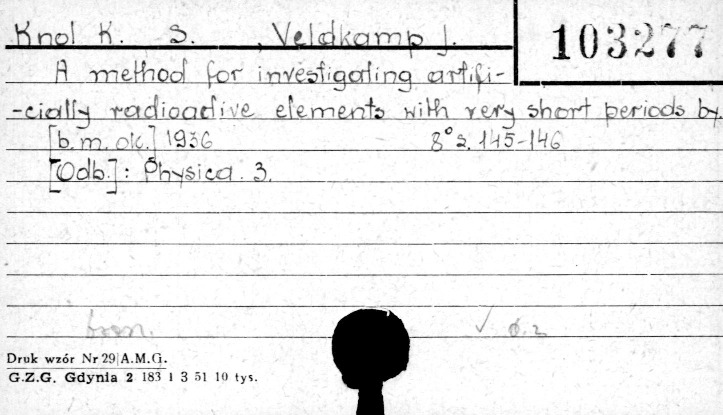 Knol K. S. , Veldkamp J.
103277
A method for investigating artifi-
-cially radioactive elements with very short periods by.
[b.m. ok.] 1936 8° s. 145-146
[Odb.]: Physica. 3.
Druk wzór Nr 29 A.M.G.
G.Z.G. Gdynia 2 183 1 3 51 10 tys.